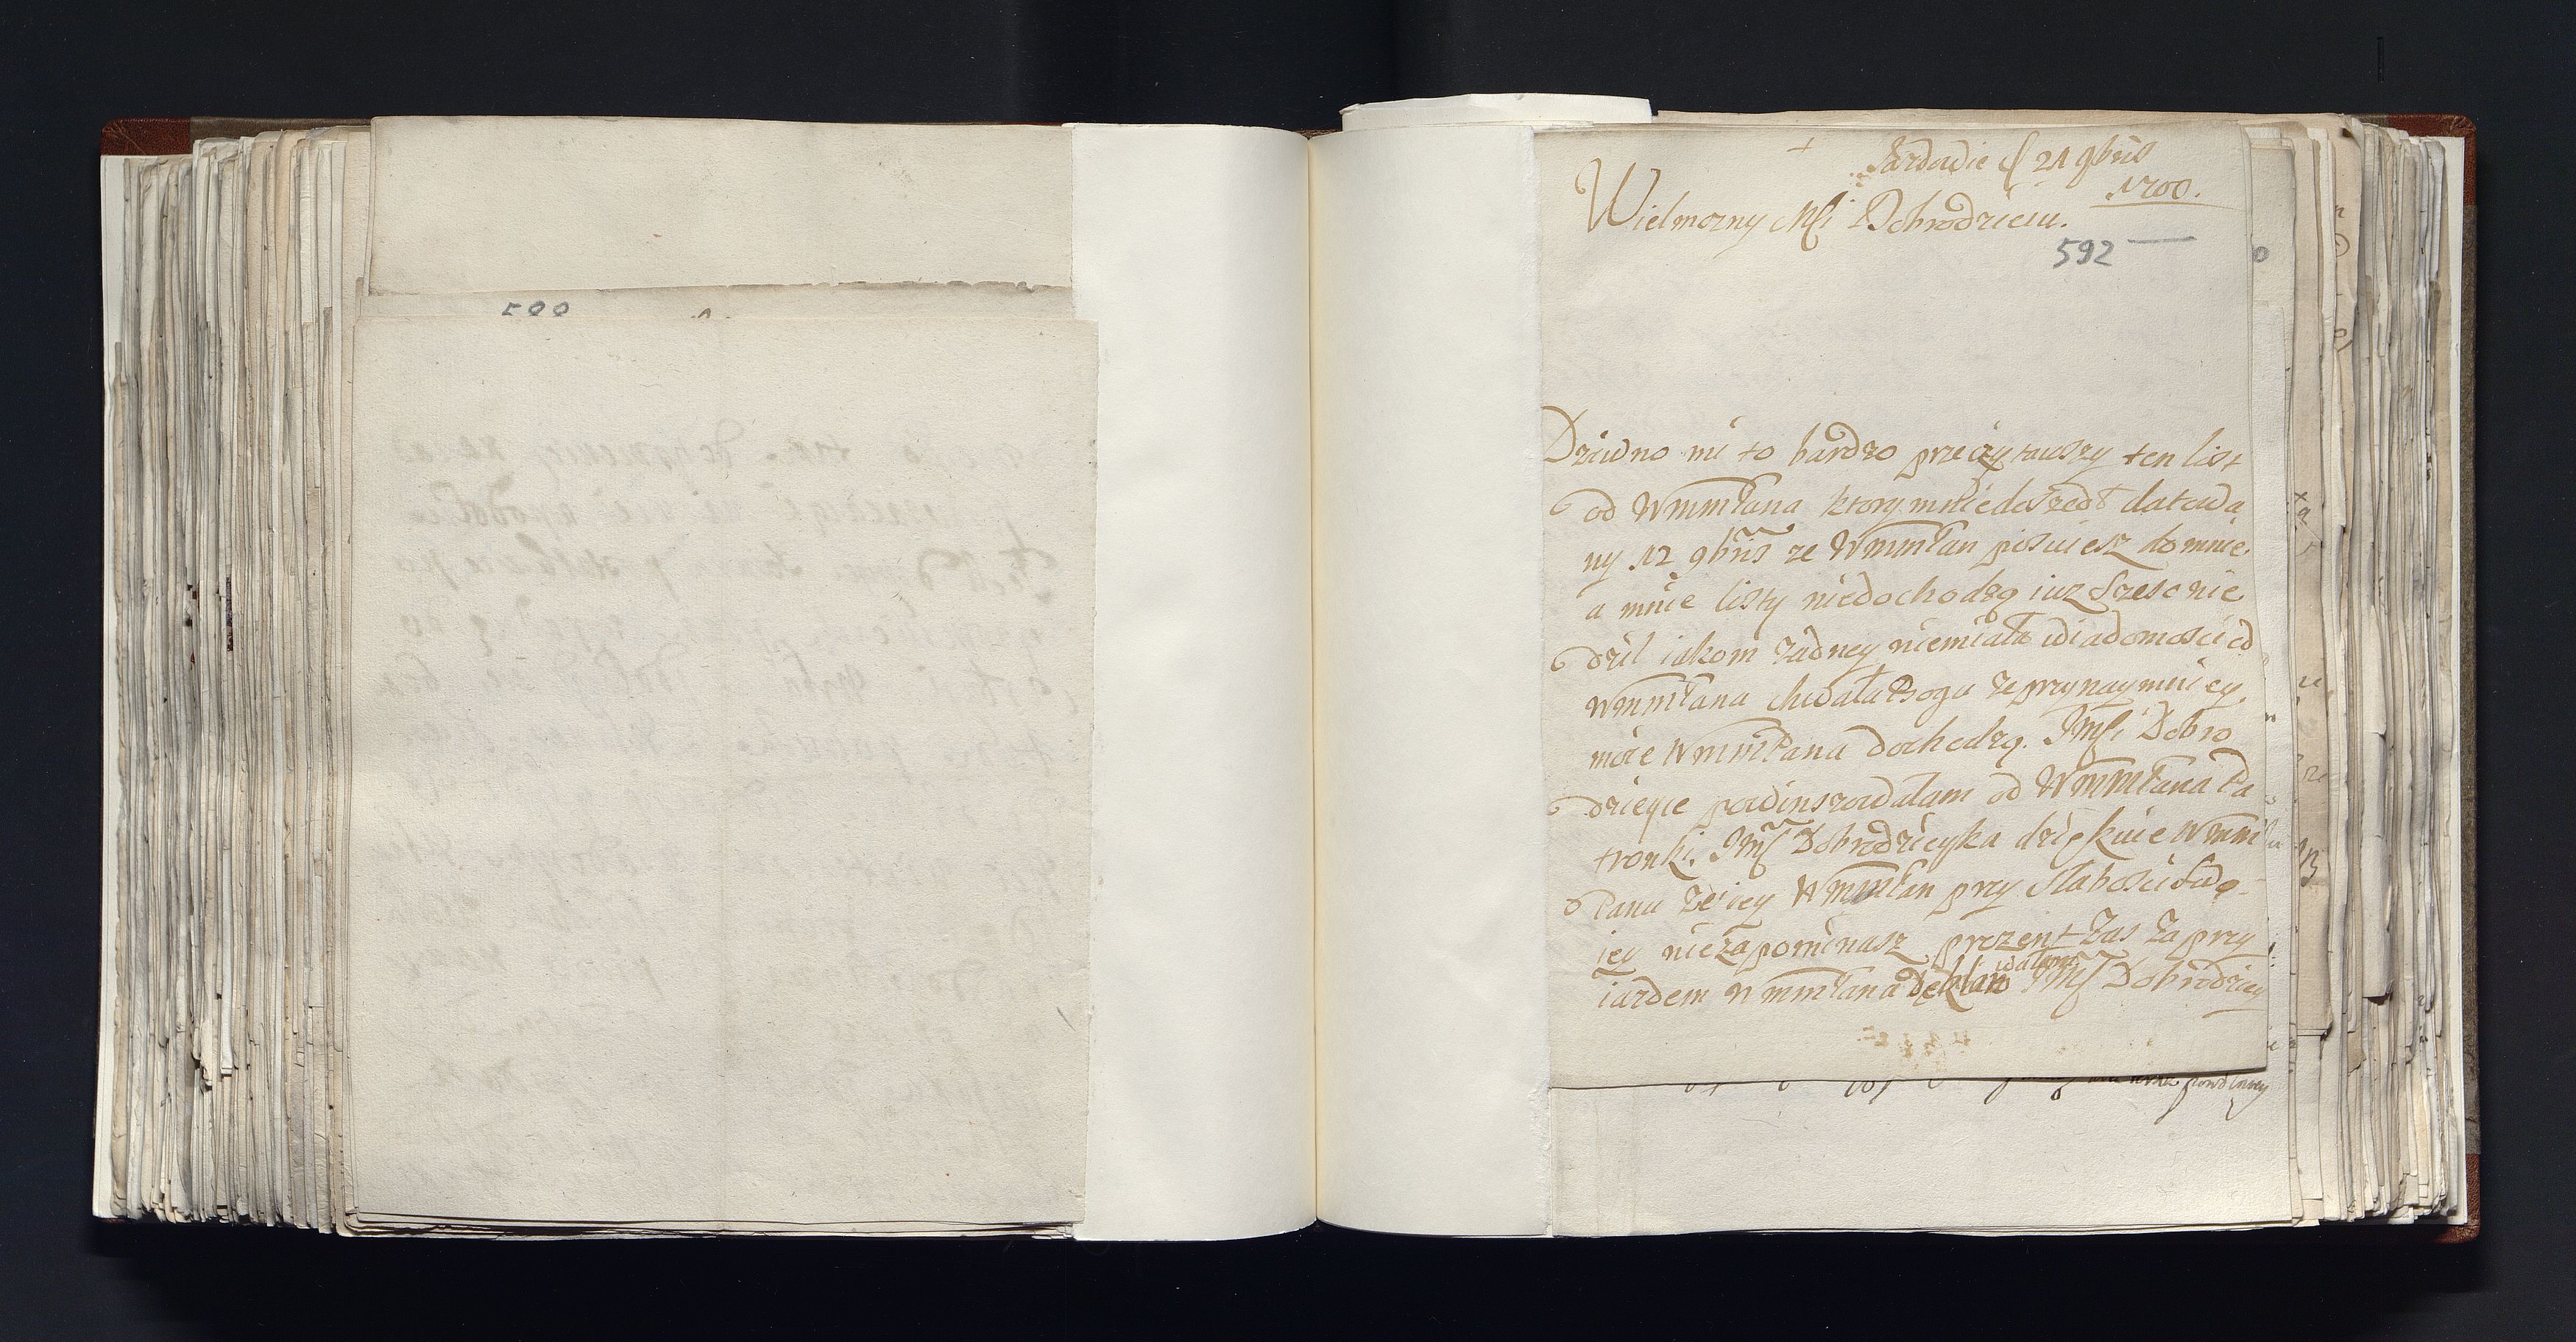 500
+
Jazdowie d 21 9bris
1700.
Wielmozny Msi Dobrodzieiu.
592
Dziwno mi to bardzo przeczytawszy ten list
od WmmPana ktory mnie doszedł datowa
ny 12 9bris ze WmmPan pisuiesz do mnie
a mnie listy niedochodzą iuz szesc nie
dzil iakom zadney niemiała wiadomosci od
WmmPana chwała Bogu ze przynaymniey
moie WmmPana dochodzą. JMsi Dobro
dzieyce powinszowałam od WmmPana Pa
tronki. JMs Dobrodzieyka dziękuie Wmm
Panu ze iey WmmPan przy słabosci swo
iey niezapominasz prezent zas za przy
iazdem WmmPana deklarowałam JMs Dobrodziey